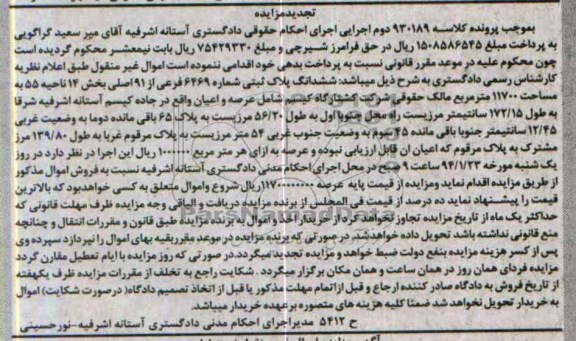 تجدیدمزایده
بموجب پرونده کلاسه ۹۳۰۱۸۹ دوم اجرایی اجرای احکام حقوقی دادگستری آستانه اشرفیه آقای میر سعید گراگویی
به پرداخت مبلغ ۱۵۰۸۵۸۶۵۴۵ ریال در حق فرامرز شیرچی و مبلغ ۷۵۴۲۹۳۳۰ ریال بابت نیمعشر محکوم گردیده است
چون محکوم علیه در موعد مقرر قانونی نسبت به پرداخت بدهی خود اقدامی ننموده است اموال غیر منقول طبق اعلام نظریه
کارشناس رسمی دادگستری به شرح ذیل میباشد: ششدانگ پلاک ثبتی شماره ۶۴۶۹ فرعی از ۹۱ اصلی بخش ۱۴ ناحیه ۵۵ به
مساحت ۱۱۷۰۰ مترمربع مالک حقوقی شرکت کشتارگاه کیسم شامل عرصه و اعیان واقع در جاده کیسم آستانه اشرفیه شرقا
به طول ۱۷۲/۱۵ سانتیمتر مرزیست راه محل جنوبا اول به طول ۵۶/۲۰ مرزیست به پلاک ۶۵ باقی مانده دوما به وضعیت غربی
۱۲/۴۵ سانتیمتر جنوبا باقی مانده ۴۵ سوم به وضعیت جنوب غربی ۵۴ متر مرزیست به پلاک مرقوم غربا به طول ۱۳۹/۸۰ مرز
مشترک به پلاک مرقوم که اعیان ان قابل ارزیابی نبوده و عرصه به ازای هر متر مربع ۱۰۰۰۰۰۰ ریال این اجرا در نظر دارد در روز
یک شنبه مورخه ۹۴/۱/۲۳ ساعت ۹ صبح در محل اجرای احکام مدنی دادگستری آستانه اشرفیه نسبت به فروش اموال مذکور
از طریق مزایده اقدام نماید ومزایده از قیمت پایه عرصه ۱۱۷۰۰۰۰۰۰۰۰ ریال شروع واموال متعلق به کسی خواهدبود که بالاترین
قیمت را پیشنهاد نماید ده درصد از قیمت فی المجلس از برنده مزایده دریافت و الباقی وجه مزایده ظرف مهلت قانونی که
حداکثر یک ماه از تاریخ مزایده تجاوز نخواهد کرد از خریدار اخذ و اموال به برنده مزایده طبق قانون و مقررات انتقال و چنانچه
منع قانونی نداشته باشد تحویل داده خواهدشد. در صورتی که برنده مزایده در موعد مقرر بقیه بهای اموال را نپردازد سپرده وی
پس از کسر هزینه مزایده بنفع دولت ضبط خواهد و مزایده تجدید میگردد.در صورتی که روز مزایده با ایام تعطیل مقارن گردد
مزایده فردای همان روز در همان ساعت و همان مکان برگزار میگردد . شکایت راجع به تخلف از مقررات مزایده ظرف یکهفته
از تاریخ فروش به دادگاه صادر کننده ارجاع و قبل از اتمام مهلت مذکور یا قبل از اتخاذ تصمیم دادگاه( درصورت شکایت) اموال
به خریدار تحویل نخواهد شد ضمنا کلیه هزینه های متصوره برعهده خریدار میباشد.
ح ۵۴۱۲ مدیراجرای احکام مدنی دادگستری آستانه اشرفیه-نورحسینی